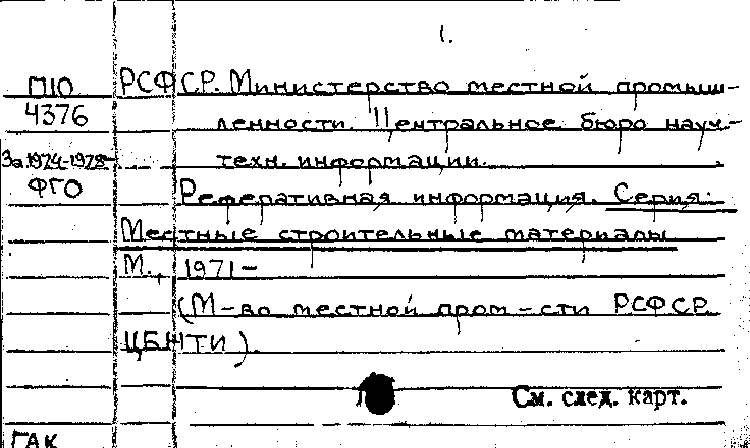 1.
П10 РСФСР. Министерство местной промыш-
4376 ленности. Центральное бюро науч.-
За 1974-1978- техн. информации.
ФГО Реферативная информация. Серия:
Местные строительные материалы
М., 1971-
(М-во местной пром-сти РСФСР.
ЦБНТИ).
См. след. карт.
ГАК